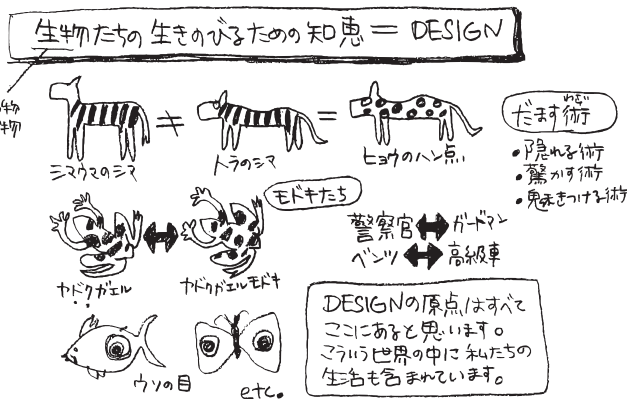 生物たちの生きのびるための知恵＝DESIGN
物
物
≠
＝
シマウマのシマ
トラのシマ
ヒョウのハン点
だます術
わざ
・隠れる術
・驚かす術
・魅きつける術
モドキたち
ヤドクガエル
ヤドクガエルモドキ
警察官↔ガードマン
ベンツ↔高級車
ウソの目
etc.
DESIGNの原点はすべて
ここにあると思います。
こういう世界の中に私たちの
生活も含まれています。